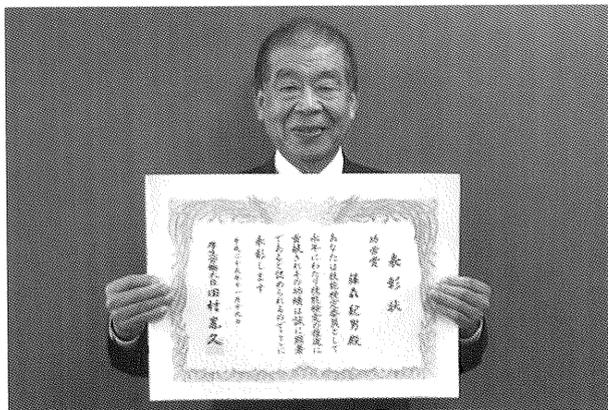 表彰状
功労賞
藤森紀男殿
あなたは技能検定委員として
永年にわたり技能検定の推進に
貢献されその功績は誠に顕著
であると認められるのでここに
表彰します
平成二十五年十一月十九日
厚生労働大臣 田村憲久